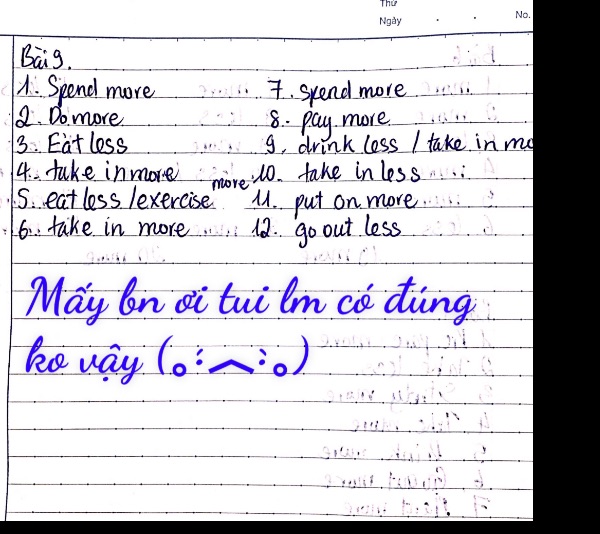 Thứ
Ngày . . No.
Bài 9.
1. Spend more 7. spend more
2. Do more 8. pay more
3. Eat less 9. drink less / take in mo
4. take in more 10. take in less
5. eat less / exercise more 11. put on more
6. take in more 12. go out less
Mấy bn ơi tui lm có đúng
ko vậy (。ﾟ︿ﾟ。)